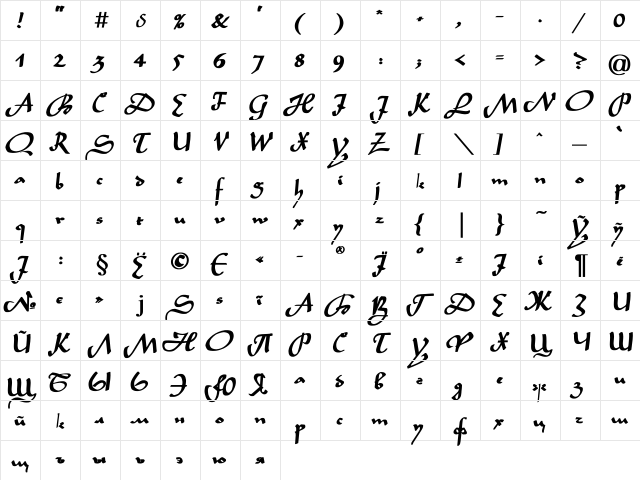 ! " # $ % & ' ( ) * + , - . / 0
1 2 3 4 5 6 7 8 9 : ; < = > ? @
A B C D E F G H I J K L M N O P
Q R S T U V W X Y Z [ \ ] ^ _ `
a b c d e f g h i j k l m n o p
q r s t u v w x y z { | } ~ Ў ў
Ј : § Ё © Є « - ® Ї ° ± І і ё ¶
№ є » j Ѕ ѕ ї А Б В Г Д Е Ж З И
Й К Л М Н О П Р С Т У Ф Х Ц Ч Ш
Щ Ъ Ы Ь Э Ю Я а б в г д е ж з и
й к л м н о п р с т у ф х ц ч ш
щ ъ ы ь э ю я